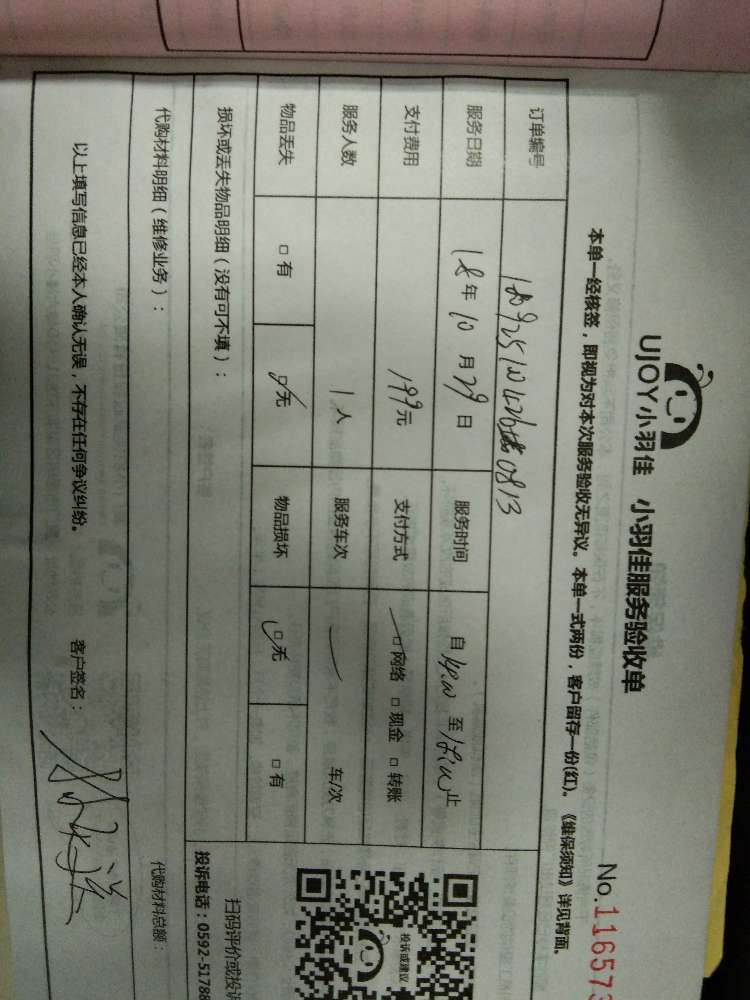 UJOY小羽佳 小羽佳服务验收单
No.116573
本单一经核签，即视为对本次服务验收无异议。本单一式两份，客户留存一份(红)。《维保须知》详见背面。
订单编号
服务日期 18年10月29日 服务时间 自 至 止
支付费用 199元 支付方式 □网络 □现金 □转账
服务人数 1人 服务车次 — 车/次
物品丢失 □有 □无 物品损坏 □无 □有
投诉或建议
扫码评价或投诉
投诉电话：0592-51788
损坏或丢失物品明细（没有可不填）：
代购材料明细（维修业务）： 代购材料总额：
以上填写信息已经本人确认无误，不存在任何争议纠纷。 客户签名：